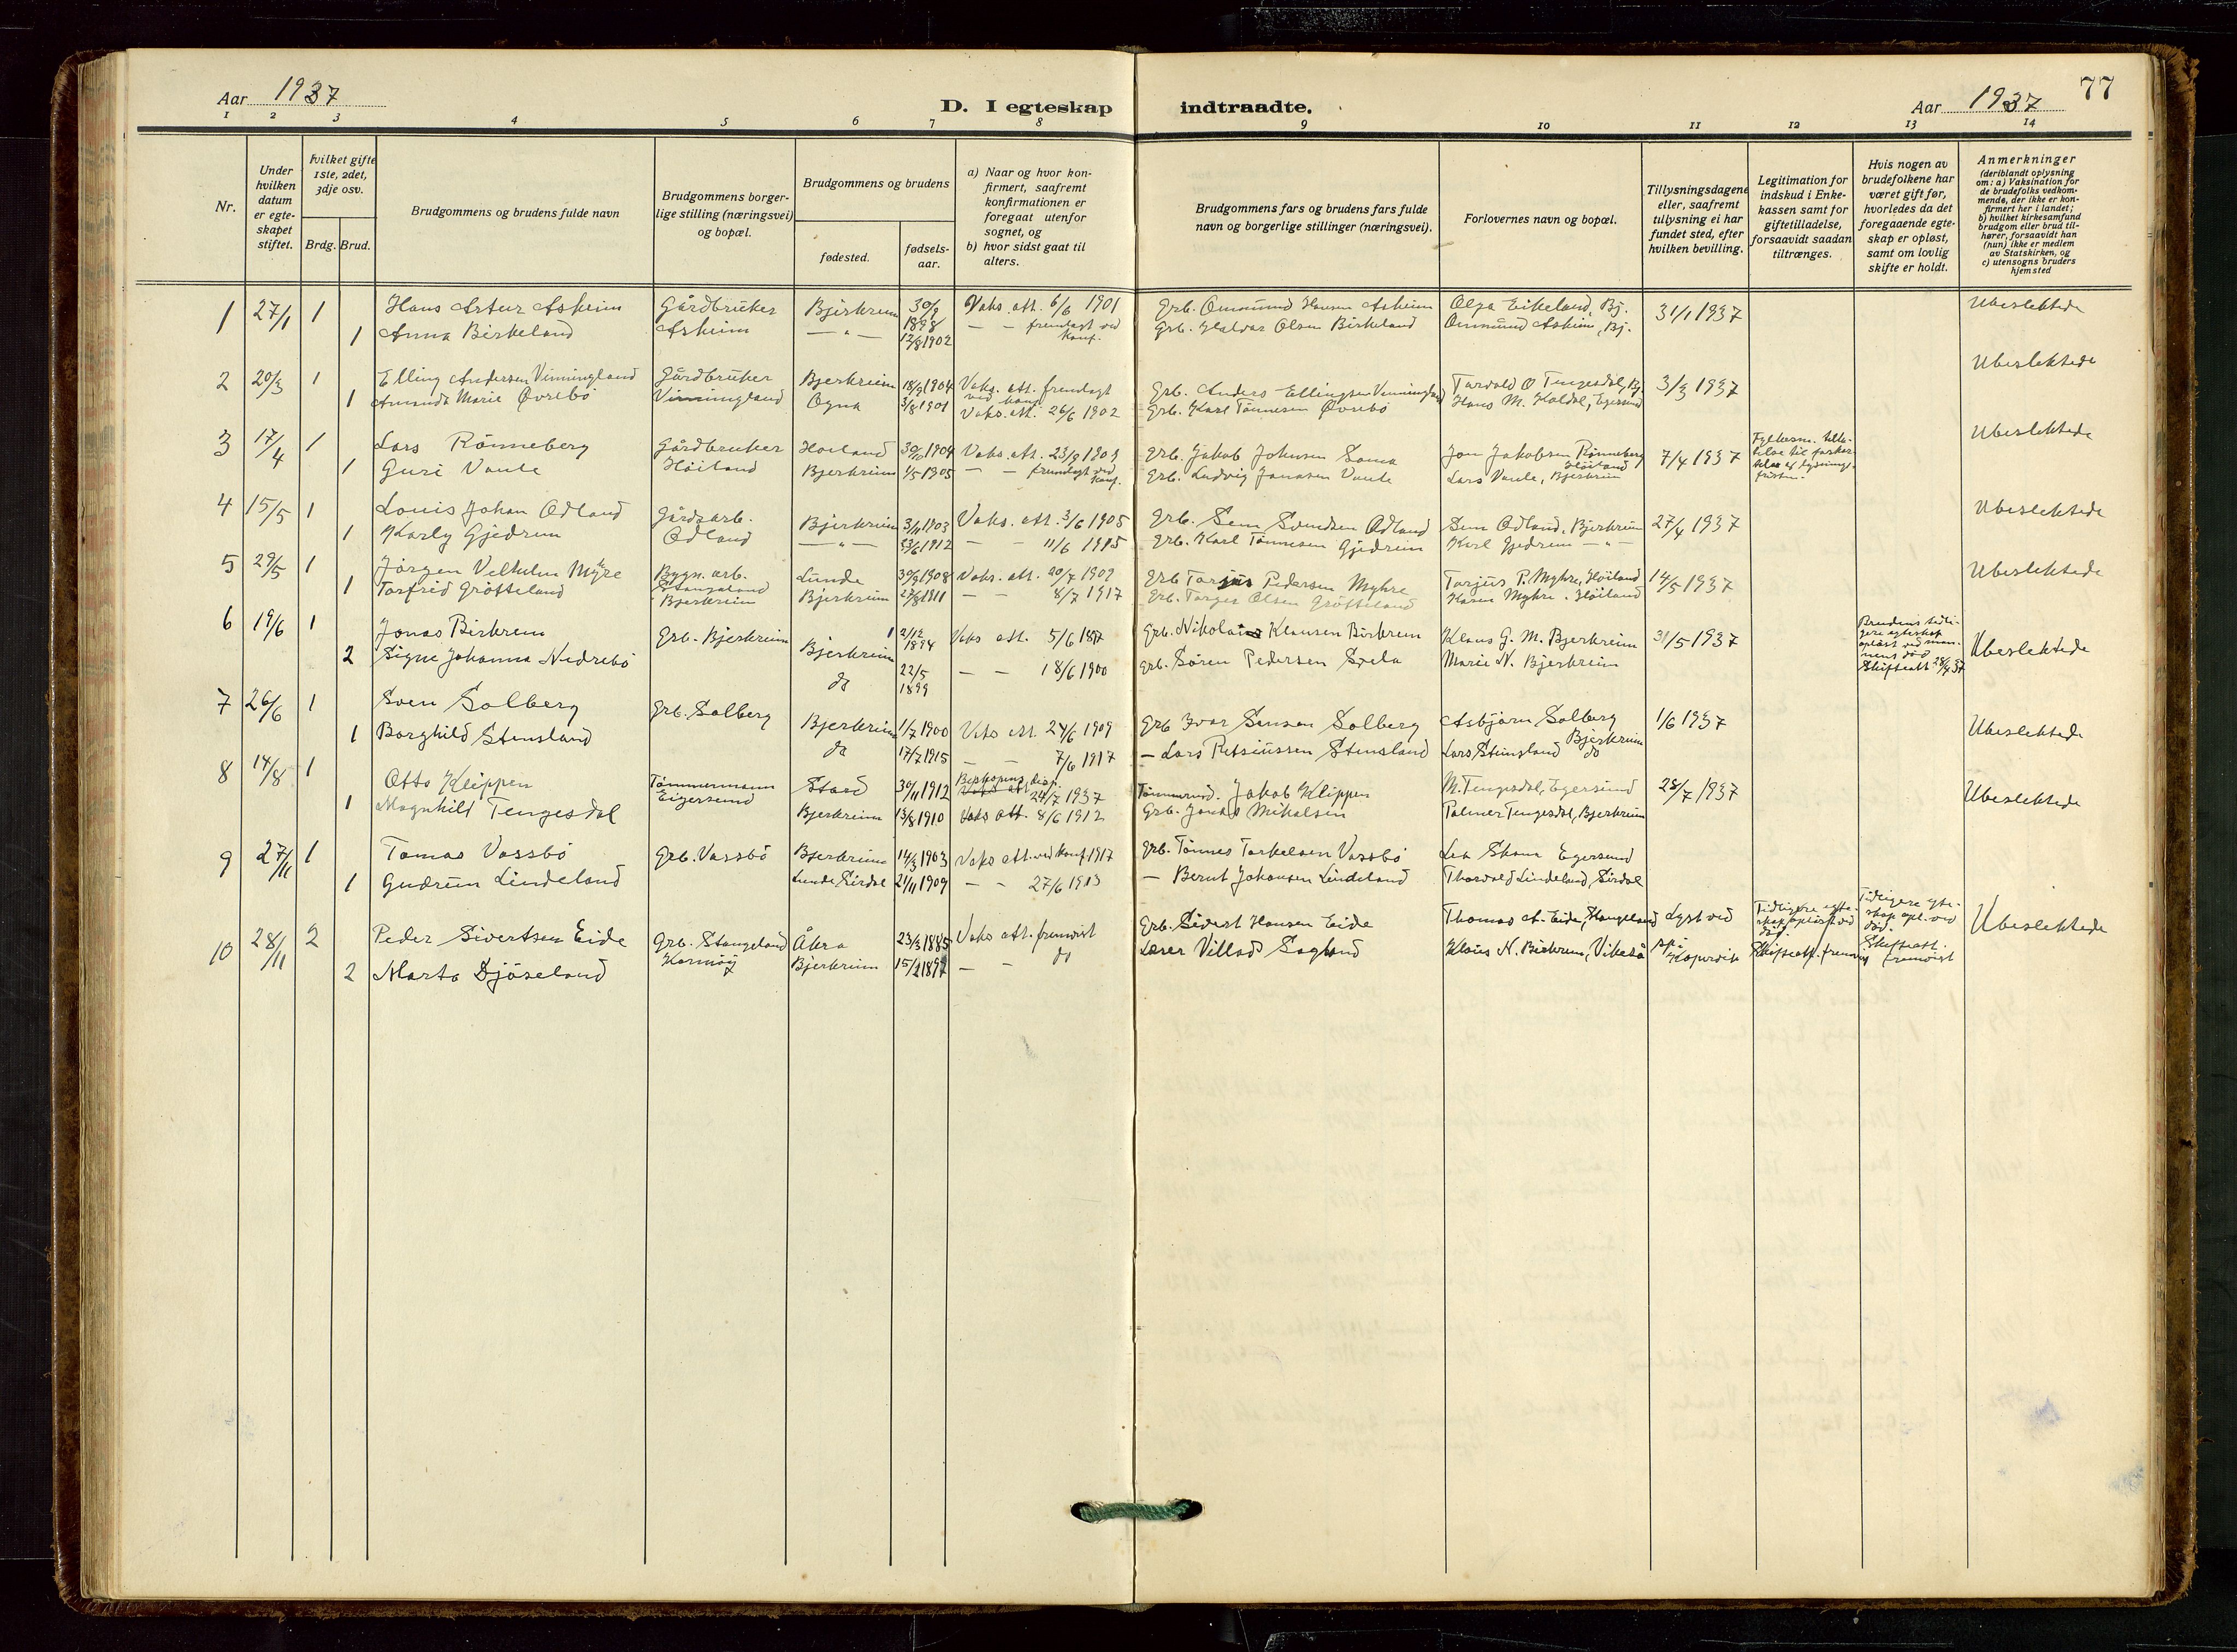 Aar 1937
D. I egteskap indtraadte.
Aar 1937
77
1 2 3 4 5 6 7 8 9 10 11 12 13 14
Nr.
Under hvilken datum er egte-skapet stiftet.
hvilket gifte 1ste, 2det, 3dje osv.
Brdg. Brud.
Brudgommens og brudens fulde navn
Brudgommens borger-lige stilling (næringsvei) og bopæl.
Brudgommens og brudens
fødested.
fødsels-aar.
a) Naar og hvor kon-firmert, saafremt konfirmationen er foregaat utenfor sognet, og
b) hvor sidst gaat til alters.
Brudgommens fars og brudens fars fulde navn og borgerlige stillinger (næringsvei).
Forlovernes navn og bopæl.
Tillysningsdagene eller, saafremt tillysning ei har fundet sted, efter hvilken bevilling.
Legitimation for indskud i Enke-kassen samt for giftetilladelse, forsaavidt saadan tiltrænges.
Hvis nogen av brudefolkene har været gift før, hvorledes da det foregaaende egte-skap er opløst, samt om lovlig skifte er holdt.
Anmerkninger (deriblandt oplysning om: a) Vaksination for de brudefolks vedkom-mende, der ikke er kon-firmert her i landet; b) hvilket kirkesamfund brudgom eller brud til-hører, forsaavidt han (hun) ikke er medlem av Statskirken, og c) utensogns bruders hjemsted
1 27/1 1 Hans Artur Asheim Gårdbruker Bjerkreim 30/9 1898 Vaks. att. 6/6 1901 Grb. Ommund Hansen Asheim Olga Eikeland, Bj. 31/1 1937 Ubeslektede
1 Anna Birkeland Asheim — " — 12/8 1902 — — fremlagt ved konf. Grb. Haldor Olsen Birkeland Ommund Asheim, Bj.
2 20/3 1 Elling Andersen Vinningland Gårdbruker Bjerkreim 18/9 1904 Vaks. att. fremlagt ved konf. Grb. Anders Ellingsen Vinningland Torvald O Tengesdal, Bj. 3/3 1937 Ubeslektede
1 Amanda Marie Øvrebö Vinningland Ogna 3/8 1901 Vaks. att. 26/6 1902 Grb. Karl Tönnesen Øvrebö Hans M. Koldal, Egersund
3 17/4 1 Lars Rönneberg Gårdbruker Hoiland 30/10 1904 Vaks. att. 23/9 1903 Grb. Jakob Johnsen Soma Jon Jakobsen Rönneberg Höiland 7/4 1937 Fylkesm. tilla-telse til forkor-telse af lysnings-fristen. Ubeslektede
1 Guri Vaule Höiland Bjerkreim 1/5 1905 — — fremlagt ved konf. Grb. Ludvig Jonassen Vaule Lars Vaule, Bjerkreim
4 15/5 1 Louis Johan Odland Gårdsarb. Bjerkreim 3/11 1903 Vaks. att. 3/6 1905 Grb. Sem Svendsen Odland Sem Odland, Bjerkreim 27/4 1937 Ubeslektede
1 Karly Gjedrem Odland — " — 23/6 1912 — — 11/6 1915 Grb. Karl Tönnesen Gjedrem Karl Gjedrem — " —
5 29/5 1 Jörgen Velhelm Myhre Bygn. arb. Lunde 30/9 1908 Vaks. att. 20/7 1909 Grb Tarjus Pedersen Myhre Tarjus P. Myhre, Höiland 14/5 1937 Ubeslektede
1 Torfrid Grötteland Stangeland Bjerkreim Bjerkreim 27/8 1911 — — 8/7 1917 Grb. Torger Olsen Grötteland Karen Myhre. Höiland
6 19/6 1 Jonas Birkrem Grb. Bjerkreim Bjerkreim 2/12 1894 Vaks att. 5/6 1897 Grb. Nikolai Klausen Birkrem Klaus G. M. Bjerkreim 31/5 1937 Brudens tidli-gere egteskap opløst ved man-nens død Skifteatt 28/4 37 Ubeslektede
2 Signe Johanna Nedrebö do 22/5 1899 — — 18/6 1900 Grb. Sören Pedersen Spela Marie N. Bjerkreim
7 26/6 1 Sven Solberg Grb. Solberg Bjerkreim 1/7 1900 Vaks att. 24/6 1909 Grb Ivar Sensen Solberg Asbjörn Solberg Bjerkreim 1/6 1937 Ubeslektede
1 Borghild Stensland do 17/7 1915 — — 7/6 1917 — Lars Petsiussen Stensland Lars Stensland do
8 14/8 1 Otto Klippen Tömmermann Stad 30/11 1912 Biskopens disp. 24/7 1937 Tömmermd. Jakob Klippen M. Tengesdal, Egersund 28/7 1937 Ubeslektede
1 Magnhild Tengesdal Eigersund Bjerkreim 13/8 1910 Vaks att. 8/6 1912 Grb. Jonas Mikalsen Palmer Tengesdal, Bjerkreim
9 27/11 1 Tomas Vassbö Grb. Vassbö Bjerkreim 14/3 1903 Vaks att. ved konf 1917 Grb. Tönnes Torkelsen Vassbö Lea Skaua Egersund
1 Gudrun Lindeland Lunde Sirdal 21/11 1909 — — 27/6 1913 — Bernt Johansen Lindeland Thorvald Lindeland, Sirdal
10 28/11 2 Peder Sivertsen Eide Grb. Stangeland Åkra 23/3 1885 Vaks att. fremvist Grb. Sivert Hansen Eide Thomas A. Eide, Stangeland Lyst ved Tidligere egte-skap opløst ved død. Tidligere egte-skap opl. ved død. Ubeslektede
2 Marta Djöseland Karmöy Bjerkreim 15/2 1897 — — do Lærer Villad Sagland Klaus N. Birkrem, Vikeså Kopervik Skifteatt. fremvist Skifteatt. fremvist